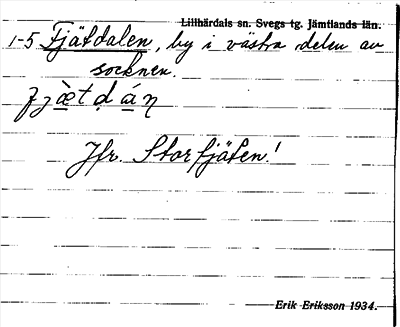 Lillhärdals sn. Svegs tg. Jämtlands län.
1-5 Fjätdalen, by i västra delen av
socknen.
fjæ̀tḍáṇ
Jfr. Storfjäten!
Erik Eriksson 1934.